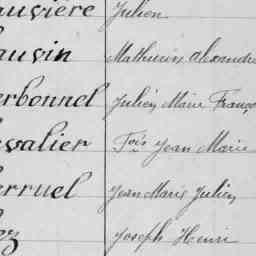 auvière Julien
auvin Mathurin Alexandre
erbonnel Julien Marie Franço
evalier Fçis Jean Marie
erruel Jean Marie Julien
ez Joseph Henri